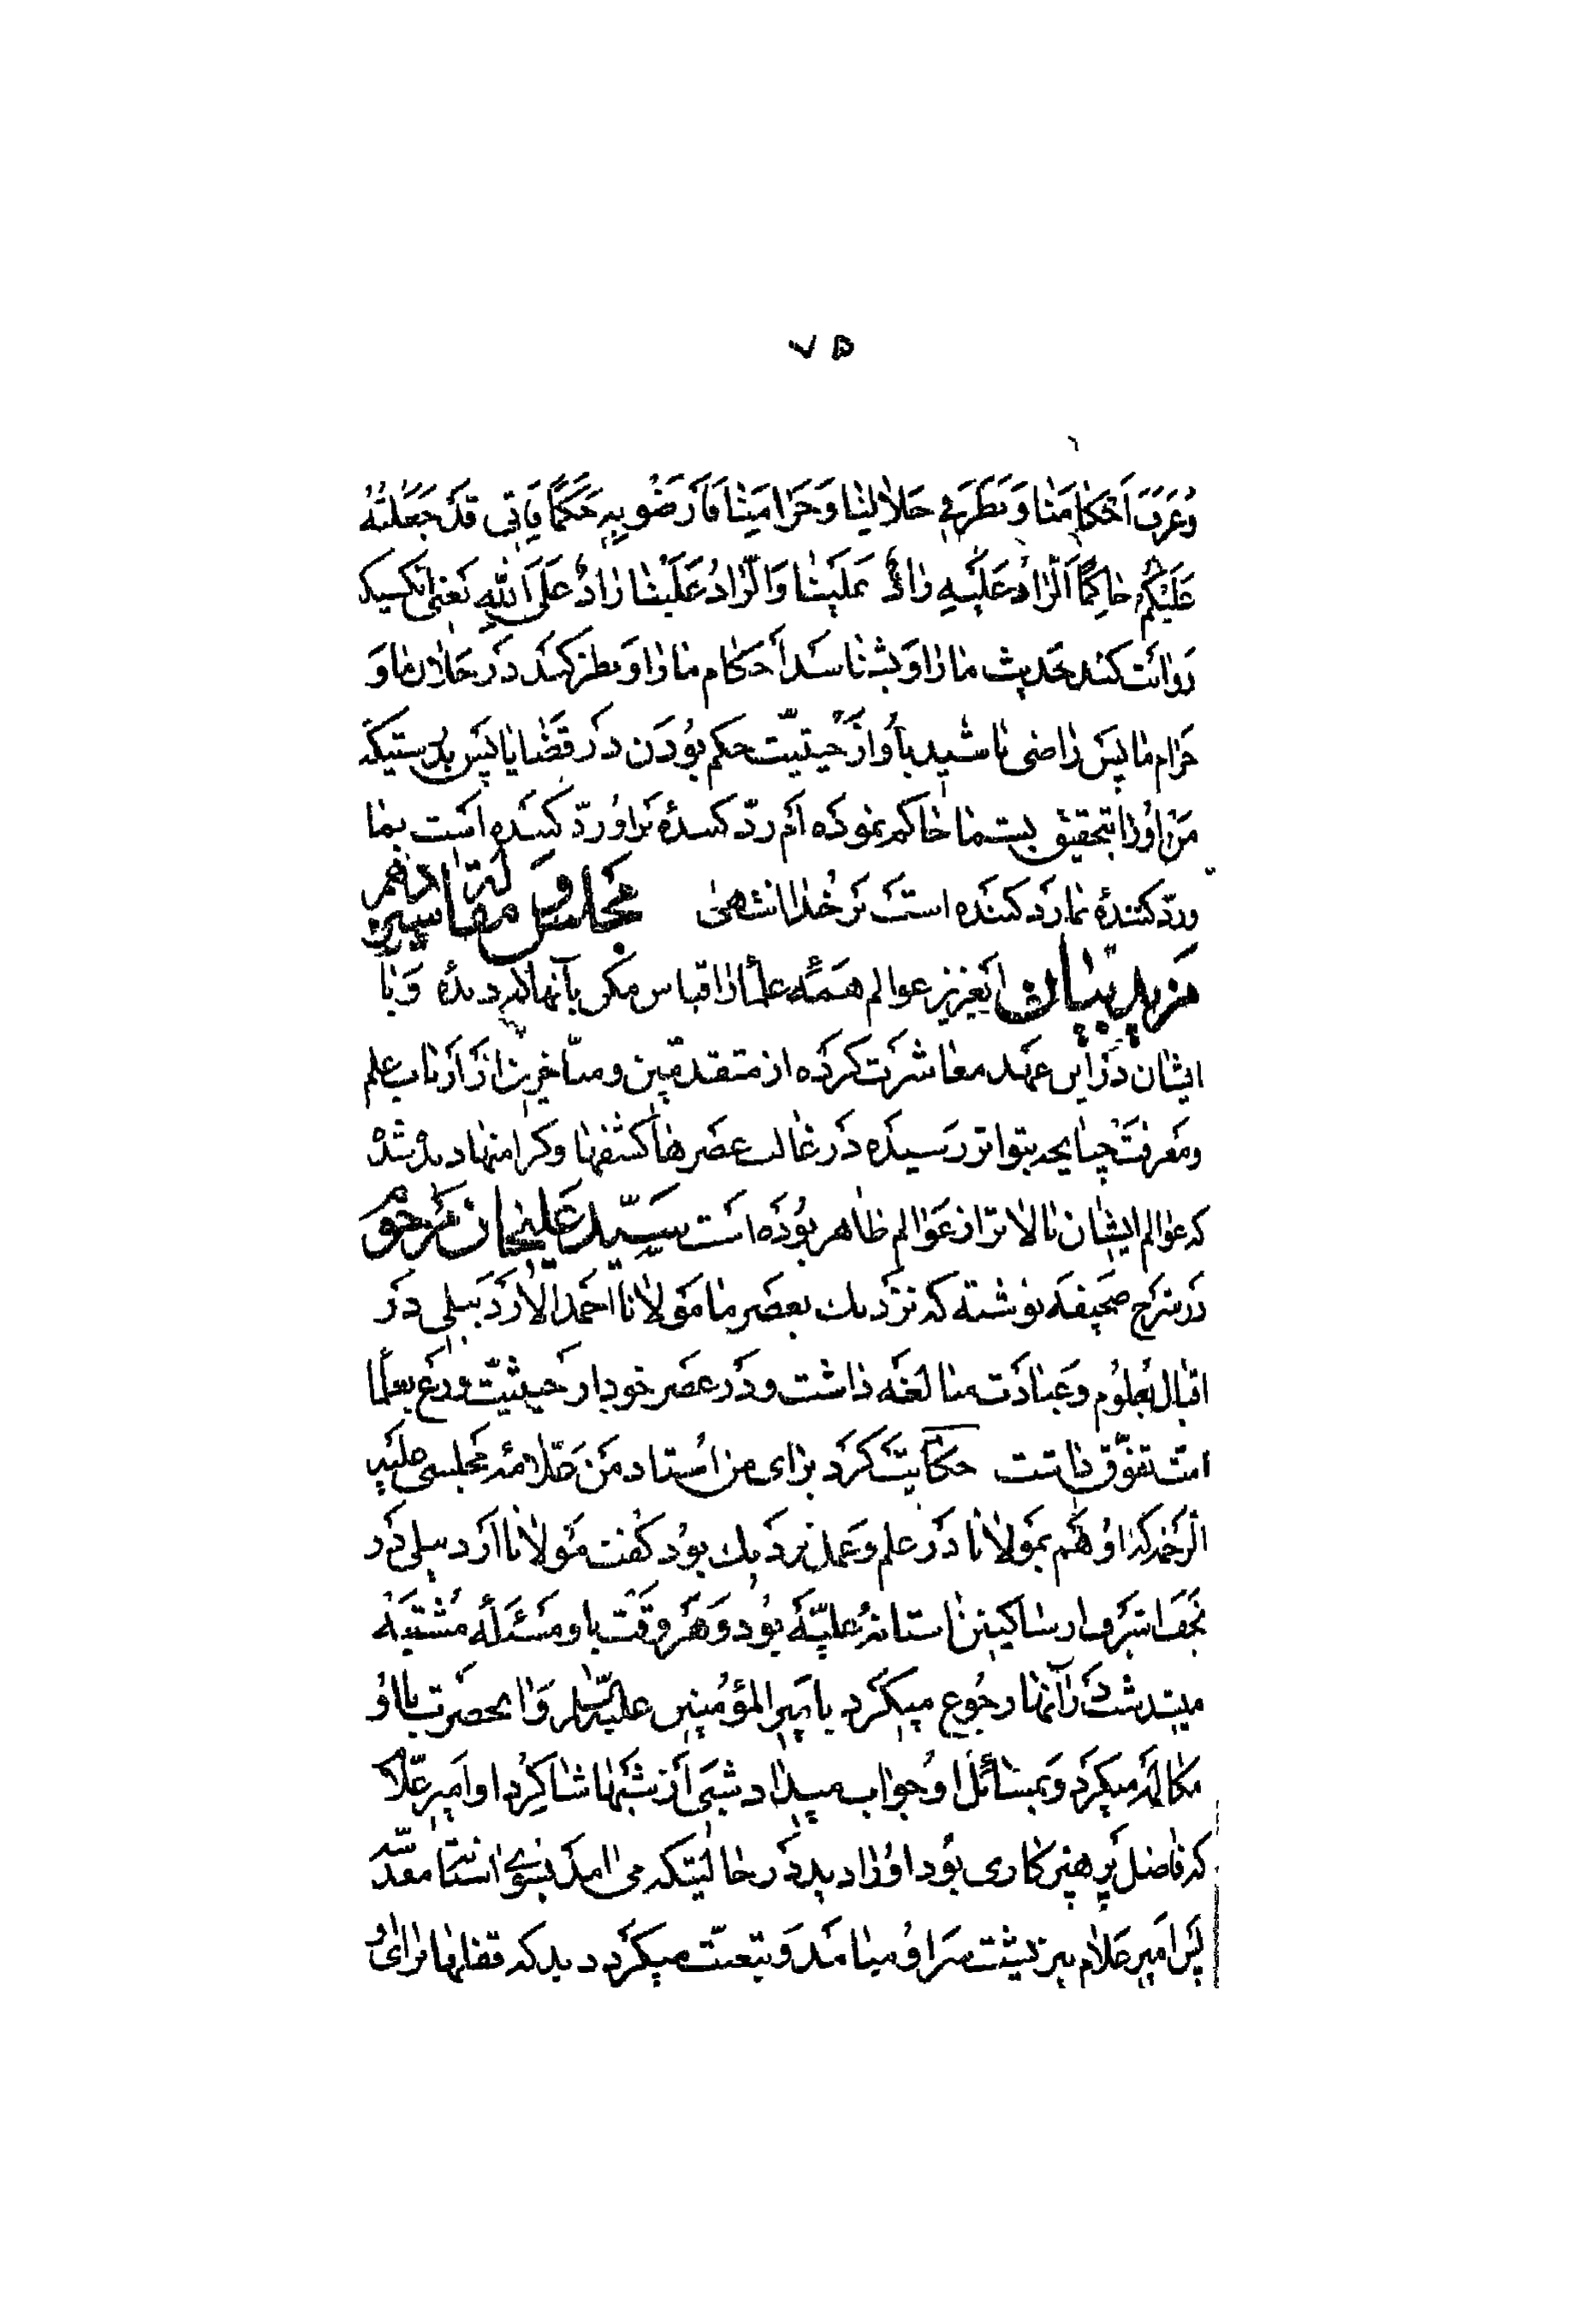 ۷۵
وَعَرَفَ اَحْکامَنا وَنَظَرَ فی حَلالِنا وَحَرامِنا فَارْضَوْ بِهِ حَکَمًا فَاِنّی قَدْ جَعَلْتُهُ
عَلَیْکُمْ حاکِمًا اَلرّادُ عَلَیْهِ رادٌّ عَلَیْنا وَالرّادُ عَلَیْنا رادٌ عَلَی اللهِ یَعنی آنکسیکه
روایت کند حدیث ما را و بشناسد احکام ما را و نظر کند در حلال ما و
حرام ما پس راضی باشید باو از حیثیت حکم بودن در قضایا پس بدرستیکه
من او را بتحقیق بشما حاکم نموده ام رد کنندهٔ براو رد کننده است بما
ورد کنندهٔ بما رد کننده است بر خدا انتهی مجلس
مزید بیان ایعزیز عوالم همه علما را قیاس مکن بآنهائیکه دیدهٔ و با
ایشان در این عهد معاشرت کرده از متقدمین و متأخرین از ارباب علم
و معرفت چنانچه بتواتر رسیده در غالب عصرها کشفها و کرامتها دیده شده
که عوالم ایشان بالاتر از عوالم ظاهر بوده است سید علیخان مرحوم
در شرح صحیفه نوشته که نزدیک بعصر ما مولانا احمد الاردبیلی در
اقبال بعلوم و عبادت مبالغه داشت و در عصر خود از حیثیت ورع بعلما
امت تفوق داشت حکایت کرد برای من استاد من علامهٔ مجلسی علیه
الرحمه که او هم بمولانا در علم و عمل نزدیک بود گفت مولانا اردبیلی در
نجف اشرف از ساکنین آستانهٔ علیّه بود و هر وقت باو مسئله مشتبه
میشد شب در آنها رجوع میکرد بامیر المؤمنین علیه السلام و آنحضرت با او
مکالمه میکرد و بمسائل او جواب میداد شبی از شبها شاگرد او امیر علام
که فاضل پرهیزکاری بود او را دید در حالتیکه می آمد بسوی آستان مقدسه
پس امیر علام نیز پشت سر او میامد و تبعیت میکرد دید که قفلها برای او